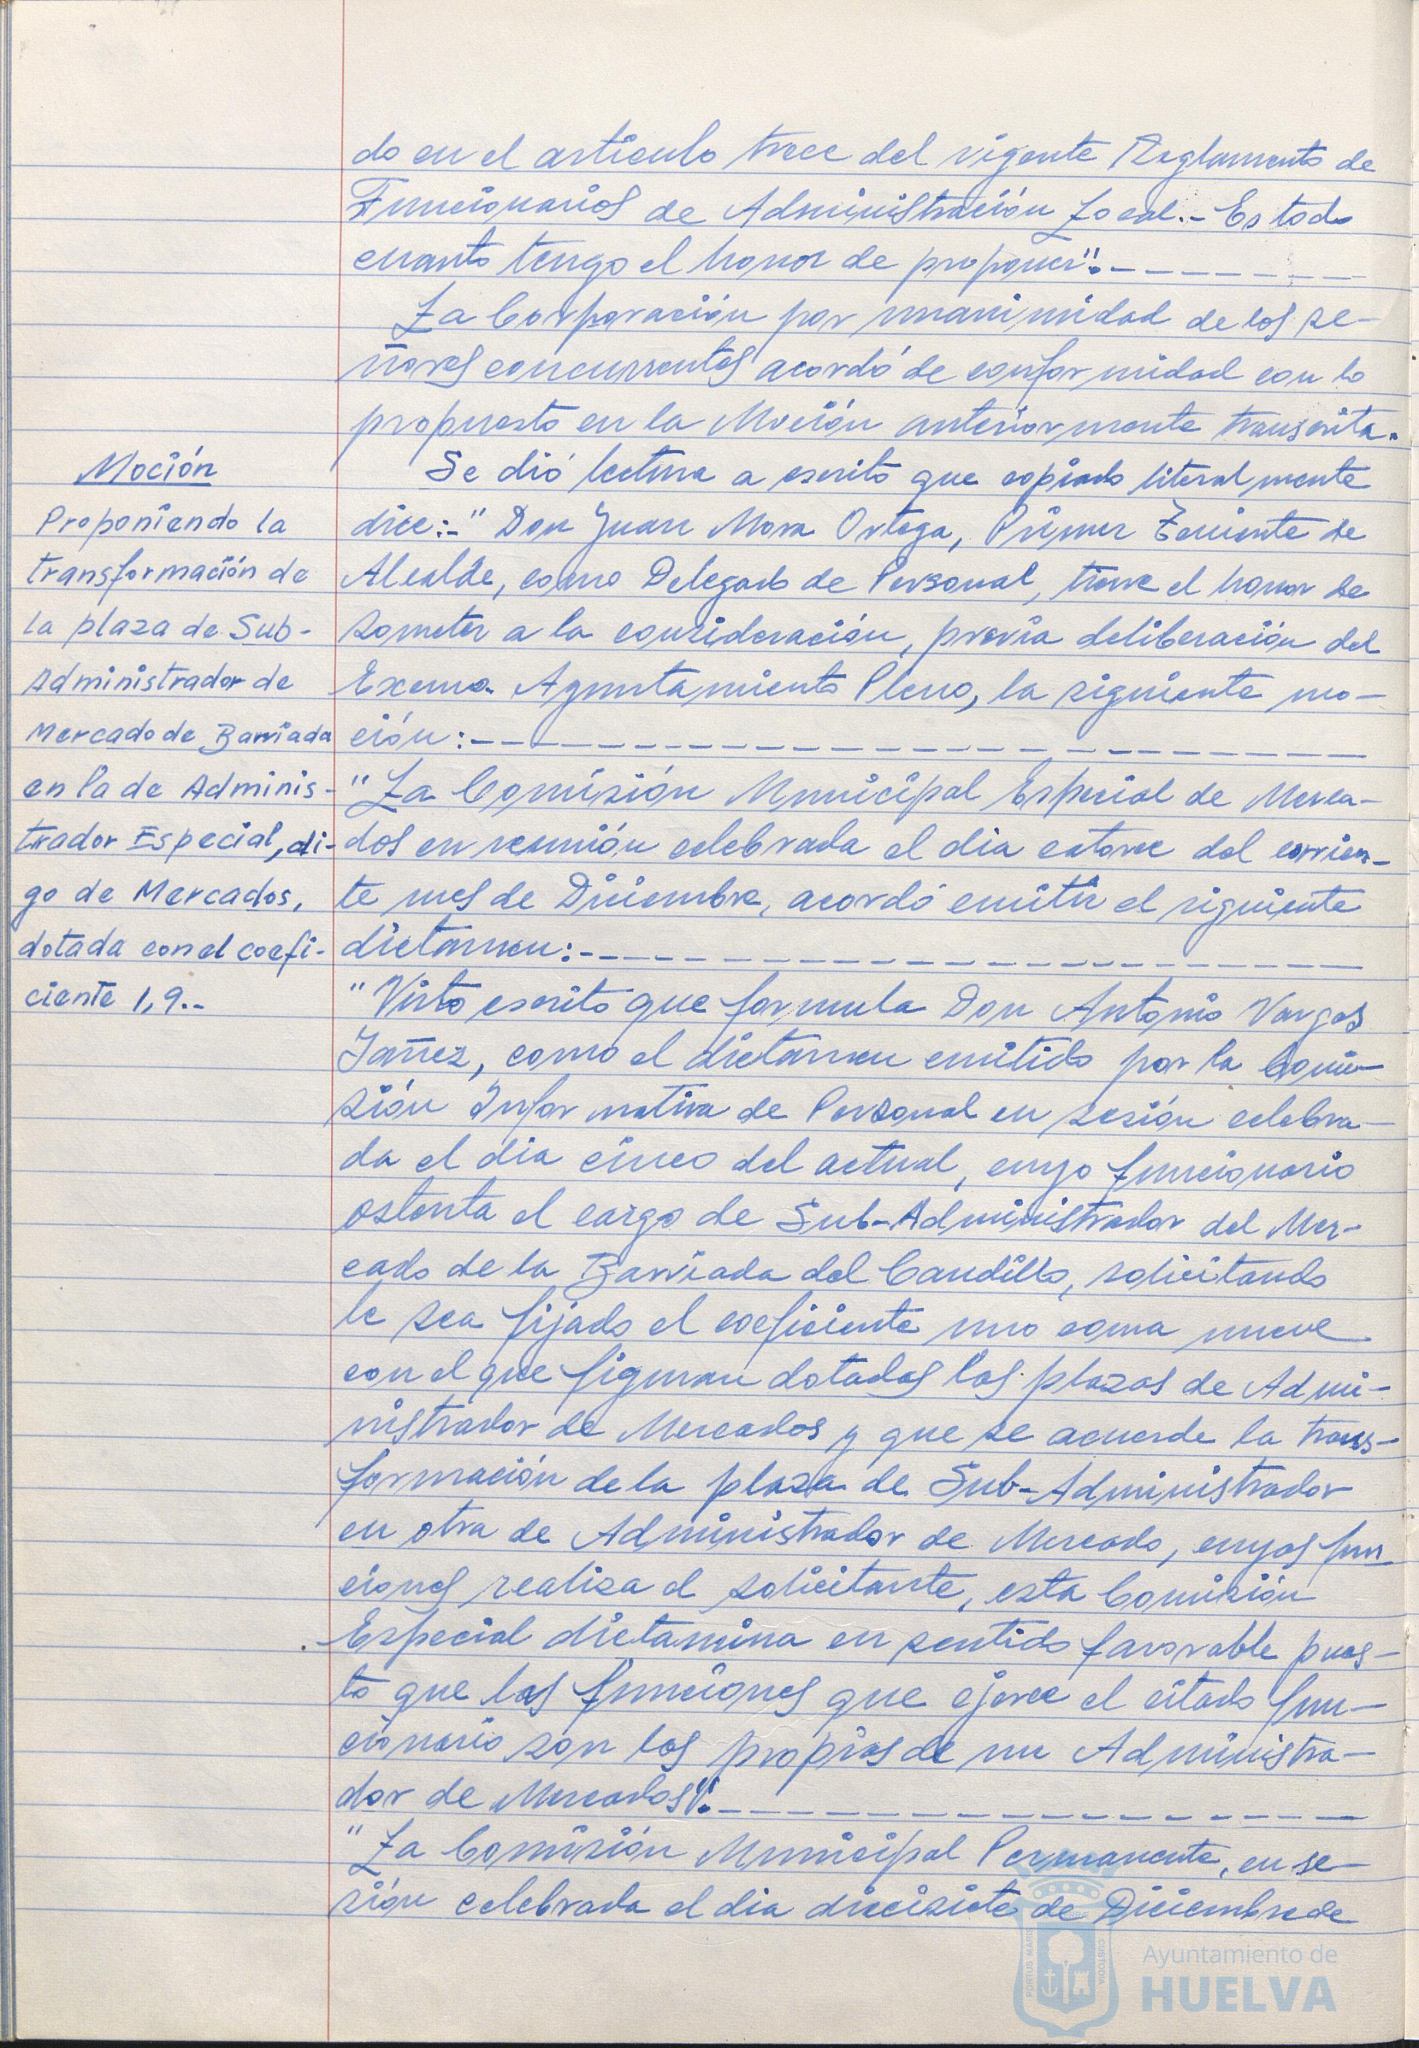 do en el artículo trece del vigente Reglamento de
Funcionarios de Administración Local.- Es todo
cuanto tengo el honor de proponer".- - - - - - - -
La Corporación por unanimidad de los se-
ñores concurrentes acordó de conformidad con lo
propuesto en la Moción anteriormente transcrita.
Moción
Proponiendo la
transformación de
la plaza de Sub-
Administrador de
Mercado de Barriada
en la de Adminis-
trador Especial, di-
go de Mercados,
dotada con el coefi-
ciente 1,9.-
Se dió lectura a escrito que copiado literalmente
dice:-" Don Juan Mora Ortega, Primer Teniente de
Alcalde, como Delegado de Personal, tiene el honor de
someter a la consideración, previa deliberación del
Excmo. Ayuntamiento Pleno, la siguiente mo-
ción:- - - - - - - - - - - - - - - -
"La Comisión Municipal Especial de Merca-
dos en reunión celebrada el dia catorce del corrien-
te mes de Diciembre, acordó emitir el siguiente
dictamen:- - - - - - - - - - - - - -
"Visto escrito que formula Don Antonio Vargas
Yañez, como el dictamen emitido por la Comi-
sión Informativa de Personal en sesión celebra-
da el dia cinco del actual, cuyo funcionario
ostenta el cargo de Sub-Administrador del Mer-
cado de la Barriada del Caudillo, solicitando
le sea fijado el coeficiente uno coma nueve
con el que figuran dotadas las plazas de Admi-
nistrador de Mercados y que se acuerde la trans-
formación de la plaza de Sub-Administrador
en otra de Administrador de Mercado, cuyas fun-
ciones realiza el solicitante, esta Comisión
Especial dictamina en sentido favorable pues-
to que las funciones que ejerce el citado fun-
cionario son las propias de un Administra-
dor de Mercados".- - - - - - - - - - - -
"La Comisión Municipal Permanente, en se-
sión celebrada el dia diecisiete de Diciembre de
PORTUS MARIS
CUSTODIA
Ayuntamiento de
HUELVA